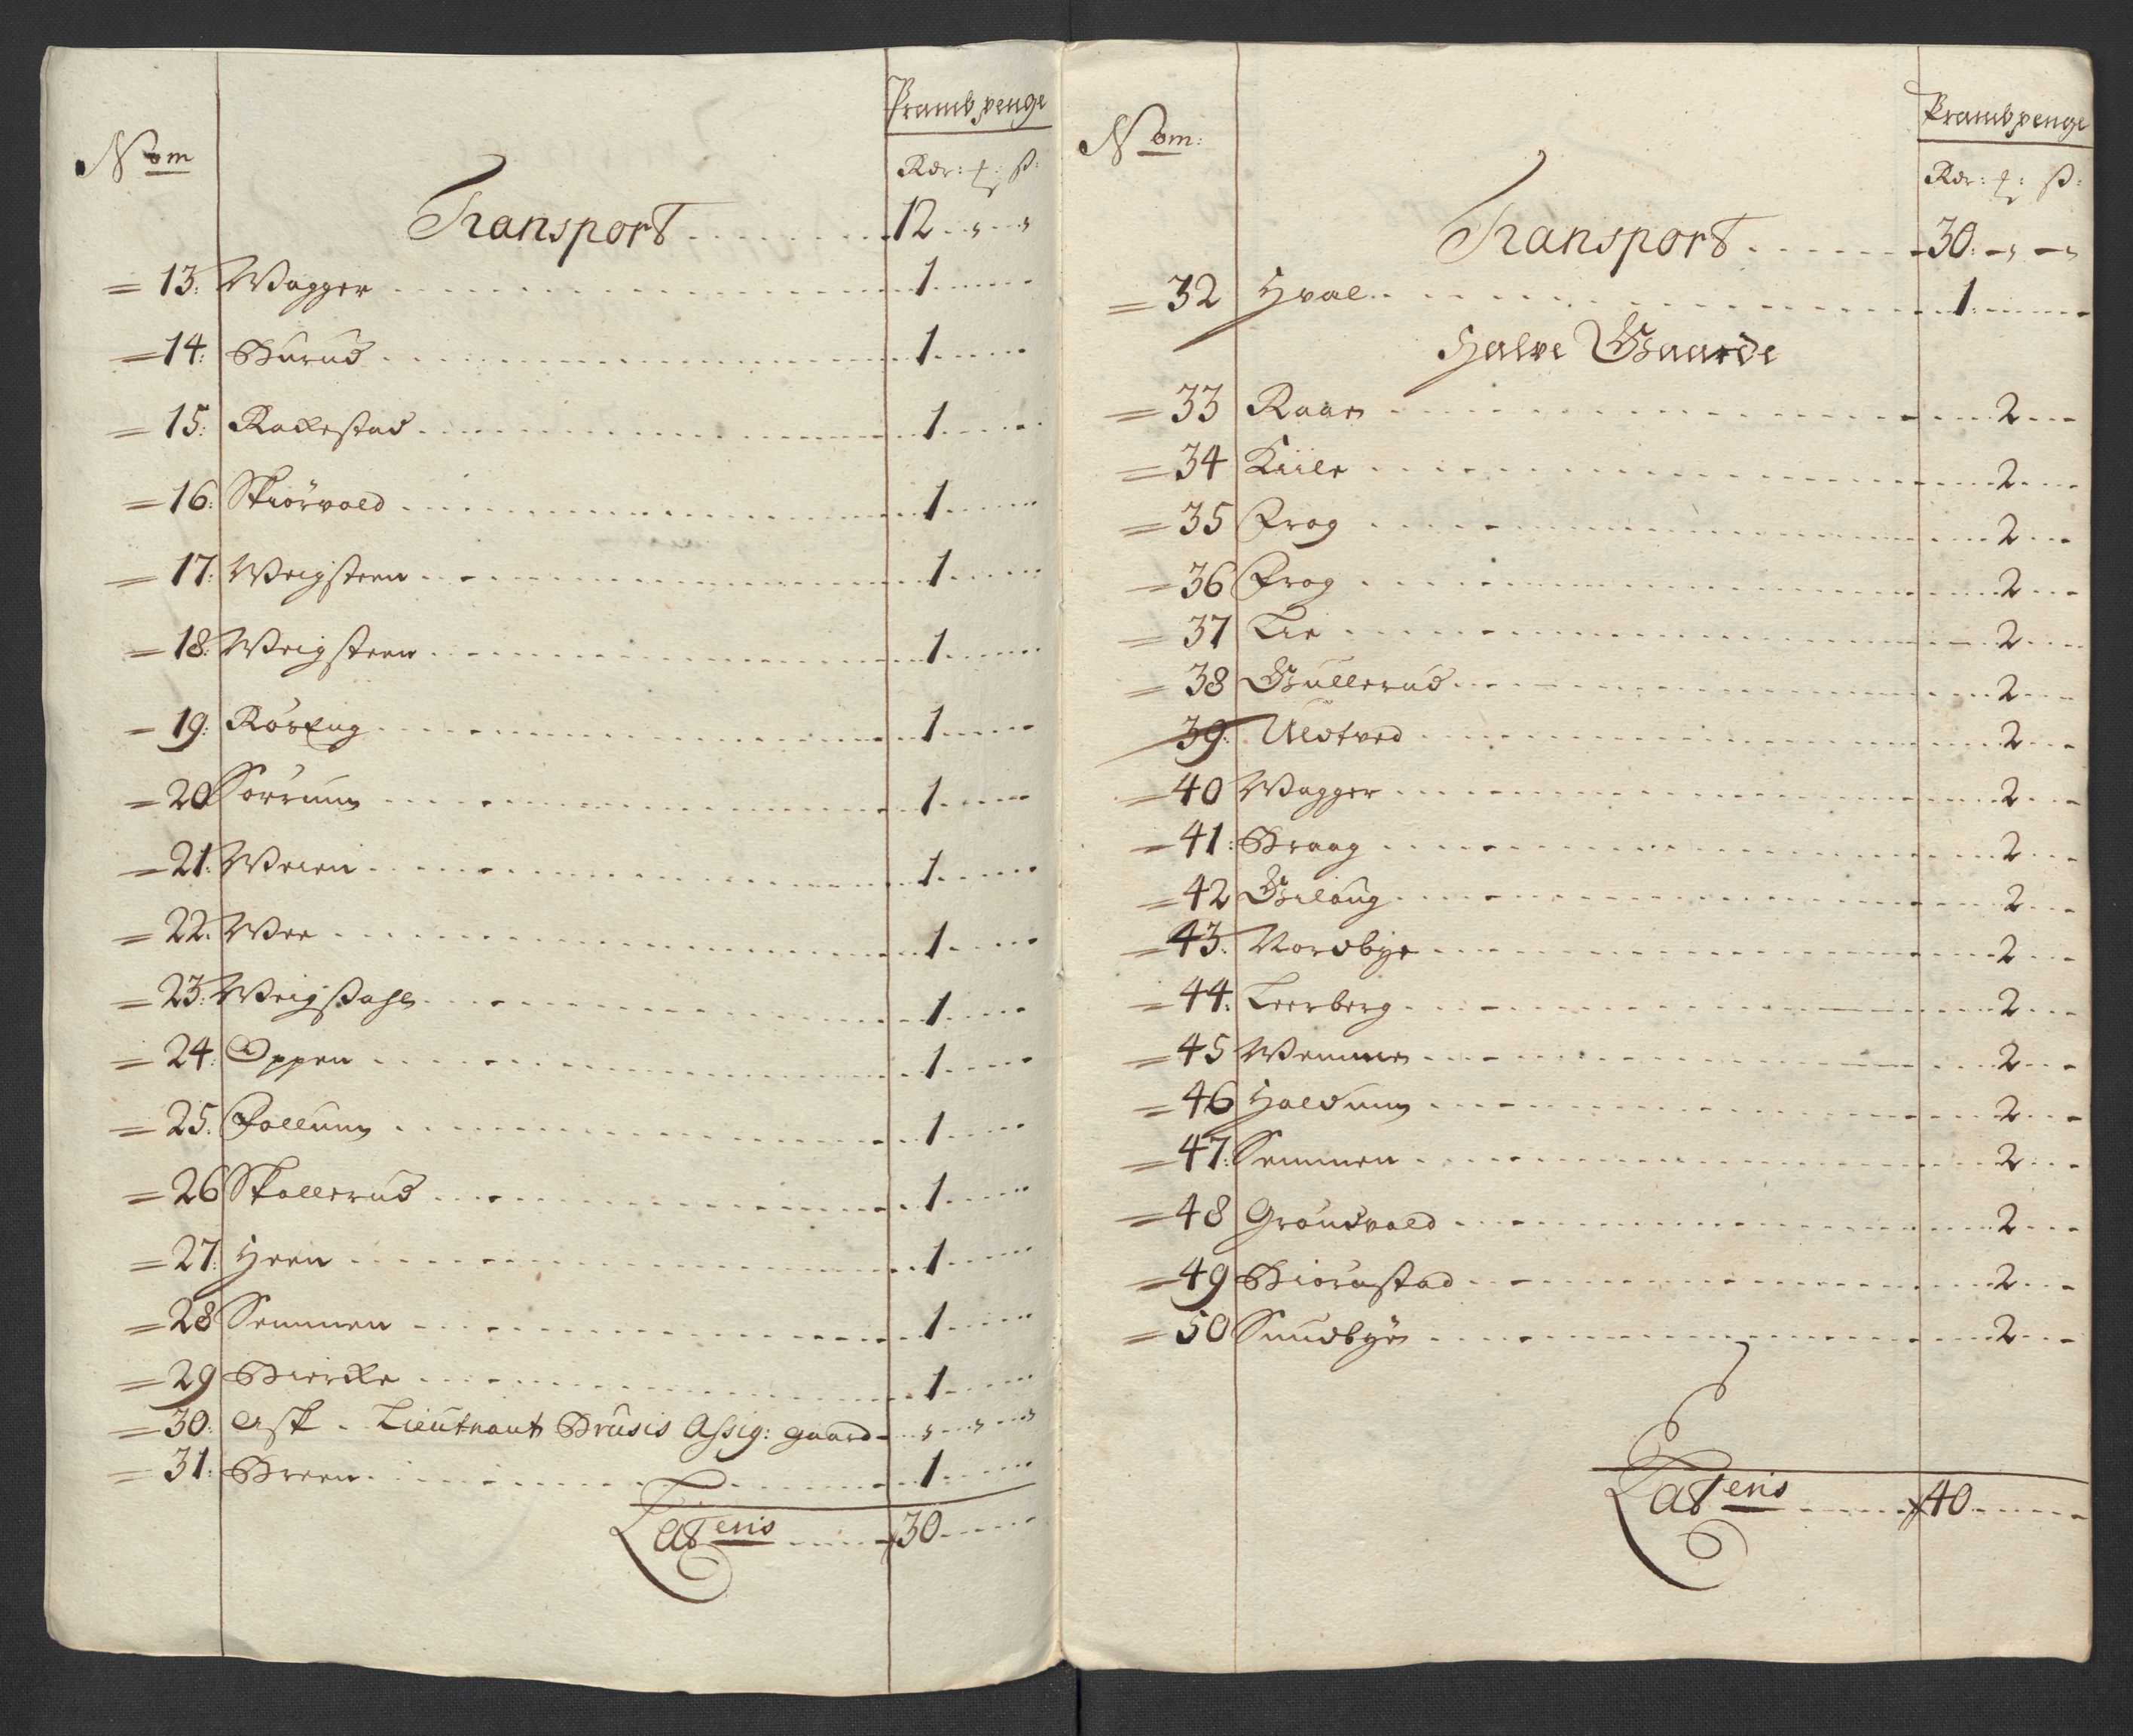 Prambpenge
Nom
Rdr: ƒ: ß:
Transport 12 " "
13: Wagger 1
14: Burud 1
15: Rakestad 1
16: Skiörvold 1
17: Weigsteen 1
18: Weigsteen 1
19: Röseng 1
20 Sørrum 1
21: Weien 1
22. Wee 1
23: Weigsdahl 1
24: Oppen 1
25. Follum 1
26 Skollerud 1
27: Heen 1
28 Semmen 1
29 Bierke 1
30: Ask - Lieutnant Brusis Assig: gaard " " "
31: Breen 1
Lateris 30
Prambpenge
Nom:
Rdr: ƒ: ß:
Transport 30: " "
32 Hval 1
Halve Gaarde
33 Raae 2
34 Kiile 2
35 Frog 2
36 Frog 2
37 Lie 2
38 Gullerud 2
39: Ulstved 2
40 Wagger 2
41: Braag 2
42 Gilöug 2
43. Nordbye 2
44: Leerberg 2
45 Wemme 2
46 Haldum 2
47: Semmen 2
48 Gröndvold 2
49 Biörnstad 2
50 Sundbye 2
Lateris 40